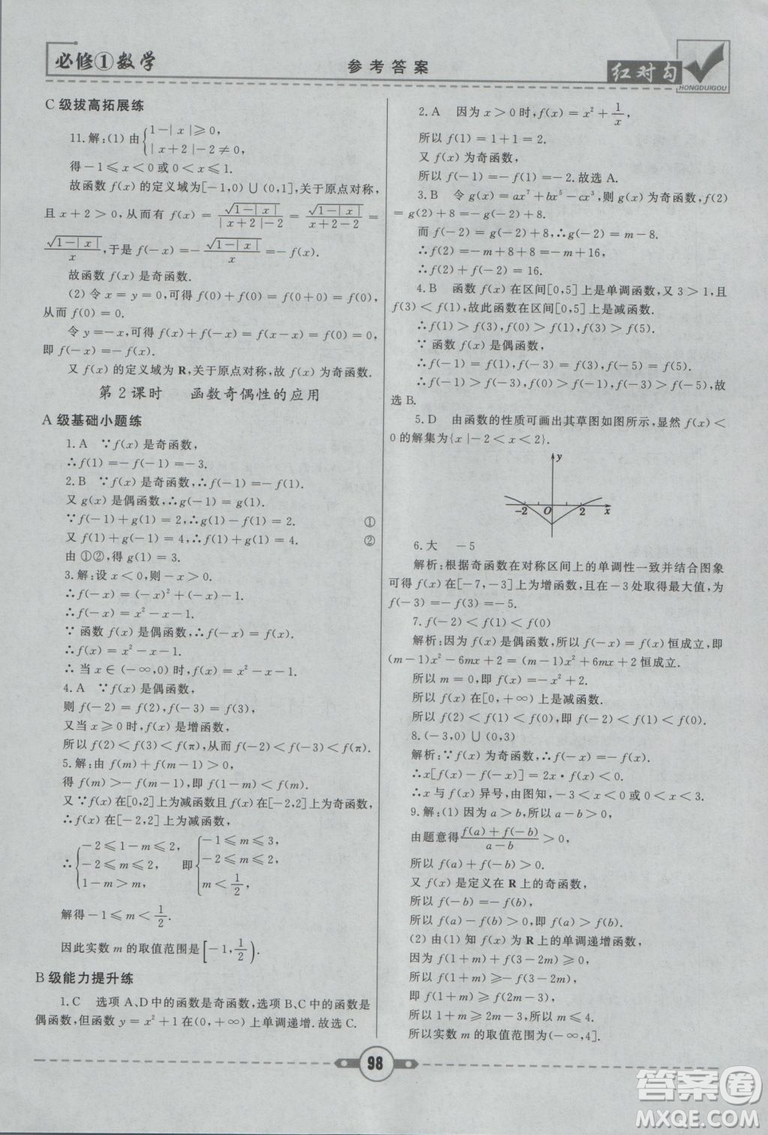 必修①数学
参考答案
红对勾
HONGDUIGOU
C级拔高拓展练
11.解:(1)由{1-|x|≥0, |x+2|-2≠0,
得-1≤x<0或0<x≤1.
故函数f(x)的定义域为[-1,0)∪(0,1],关于原点对称,
且x+2>0,从而有f(x)=√(1-|x|)/(|x+2|-2)=√(1-|x|)/(x+2-2)=
√(1-|x|)/x,于是f(-x)=-√(1-|x|)/x=-f(x),
故函数f(x)是奇函数.
(2)令x=y=0,可得f(0)+f(0)=f(0+0)=f(0),
从而f(0)=0.
令y=-x,可得f(x)+f(-x)=f(x-x)=f(0)=0,
即f(-x)=-f(x).
又f(x)的定义域为R,关于原点对称,故f(x)为奇函数.
第2课时 函数奇偶性的应用
A级基础小题练
1.A ∵f(x)是奇函数,
∴f(1)=-f(-1)=-3.
2.B ∵f(x)是奇函数,∴f(-1)=-f(1).
又g(x)是偶函数,∴g(-1)=g(1).
∵f(-1)+g(1)=2,∴g(1)-f(1)=2. ①
又f(1)+g(-1)=4,∴f(1)+g(1)=4. ②
由①②,得g(1)=3.
3.解:设x<0,则-x>0.
∴f(-x)=(-x)²+(-x)-1.
∴f(-x)=x²-x-1.
∵函数f(x)是偶函数,∴f(-x)=f(x).
∴f(x)=x²-x-1.
∴当x∈(-∞,0)时,f(x)=x²-x-1.
4.A ∵f(x)是偶函数,
则f(-2)=f(2),f(-3)=f(3),
又当x≥0时,f(x)是增函数,
所以f(2)<f(3)<f(π),从而f(-2)<f(-3)<f(π).
5.解:由f(m)+f(m-1)>0,
得f(m)>-f(m-1),即f(1-m)<f(m).
又∵f(x)在[0,2]上为减函数且f(x)在[-2,2]上为奇函数,
∴f(x)在[-2,2]上为减函数.
∴{-2≤1-m≤2, -2≤m≤2, 1-m>m, 即{-1≤m≤3, -2≤m≤2, m<1/2,
解得-1≤m<1/2.
因此实数m的取值范围是[-1,1/2).
B级能力提升练
1.C 选项A、D中的函数是奇函数,选项B、C中的函数是
偶函数,但函数y=x²+1在(0,+∞)上单调递增.故选C.
2.A 因为x>0时,f(x)=x²+1/x,
所以f(1)=1+1=2.
又f(x)为奇函数,
所以f(-1)=-f(1)=-2.故选A.
3.B 令g(x)=ax⁷+bx⁵-cx³,则g(x)为奇函数,f(2)
=g(2)+8,f(-2)=g(-2)+8=-g(2)+8.
∵f(-2)=m,∴g(2)=8-m,g(-2)=m-8.
∴f(2)=-m+8+8=-m+16,
∴f(2)+f(-2)=16.
4.B 函数f(x)在区间[0,5]上是单调函数,又3>1,且
f(3)<f(1),故此函数在区间[0,5]上是减函数.
∴f(1)>f(3),f(0)>f(1),f(3)>f(5).
∵函数f(x)是偶函数,
∴f(-1)=f(1),f(-3)=f(3),f(-5)=f(5).
∴f(-1)>f(-3),f(0)>f(-1),f(-3)>f(-5).故
选B.
5.D 由函数的性质可画出其草图如图所示,显然f(x)<
0的解集为{x|-2<x<2}.
y
-2 O 2 x
6.大 -5
解析:根据奇函数在对称区间上的单调性一致并结合图象
可得f(x)在[-7,-3]上为增函数,且在-3处取得最大值,为
f(-3)=-f(3)=-5.
7.f(-2)<f(1)<f(0)
解析:因为f(x)是偶函数,所以f(-x)=f(x)恒成立,即
(m-1)x²-6mx+2=(m-1)x²+6mx+2恒成立.
所以m=0,即f(x)=-x²+2.
又f(x)在[0,+∞)上是减函数,
所以f(2)<f(1)<f(0),即f(-2)<f(1)<f(0).
8.(-3,0)∪(0,3)
解析:∵f(x)为奇函数,∴f(x)=-f(-x).
∴x[f(x)-f(-x)]=2x·f(x)<0.
∴x与f(x)异号,由图可得-3<x<0或0<x<3.
9.解:(1)因为a>b,所以a-b>0,
由题意得(f(a)+f(-b))/(a-b)>0,
所以f(a)+f(-b)>0.
又f(x)是定义在R上的奇函数,
所以f(-b)=-f(b).
所以f(a)-f(b)>0,即f(a)>f(b).
(2)由(1)知f(x)为R上的单调递增函数,
因为f(1+m)+f(3-2m)≥0,
所以f(1+m)≥-f(3-2m),
即f(1+m)≥f(2m-3).
所以1+m≥2m-3.所以m≤4.
所以实数m的取值范围为(-∞,4].
98
答案圈
MXQE.COM